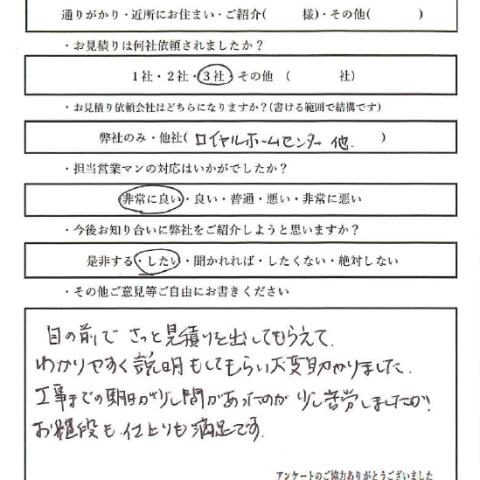 通りがかり・近所にお住まい・ご紹介(　　　様)・その他(　　　　)
・お見積りは何社依頼されましたか？
1社・2社・3社・その他 （　　　　社）
・お見積り依頼会社はどちらになりますか？(書ける範囲で結構です)
弊社のみ・他社( ロイヤルホームセンター 他. )
・担当営業マンの対応はいかがでしたか？
非常に良い・良い・普通・悪い・非常に悪い
・今後お知り合いに弊社をご紹介しようと思いますか？
是非する・したい・聞かれれば・したくない・絶対しない
・その他ご意見等ご自由にお書きください
目の前で さっと見積りを出してもらえて、
わかりやすく説明もしてもらい大変助かりました。
工事までの期日が少し間があったのが 少し苦労しましたが
お値段も 仕上りも 満足です。
アンケートのご協力ありがとうございました